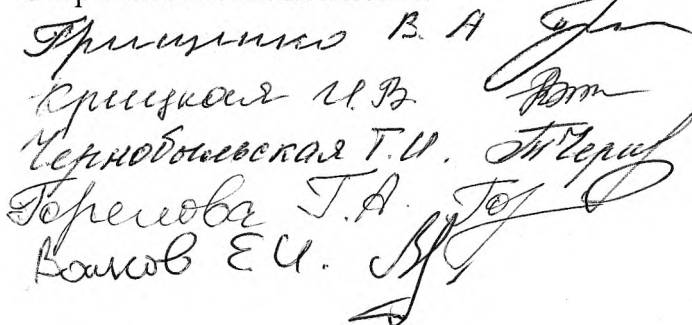 Грищенко В. А
Крицкая И.В.
Чернобыльская Т.И.
Горелова Т.А.
Волков Е.И.